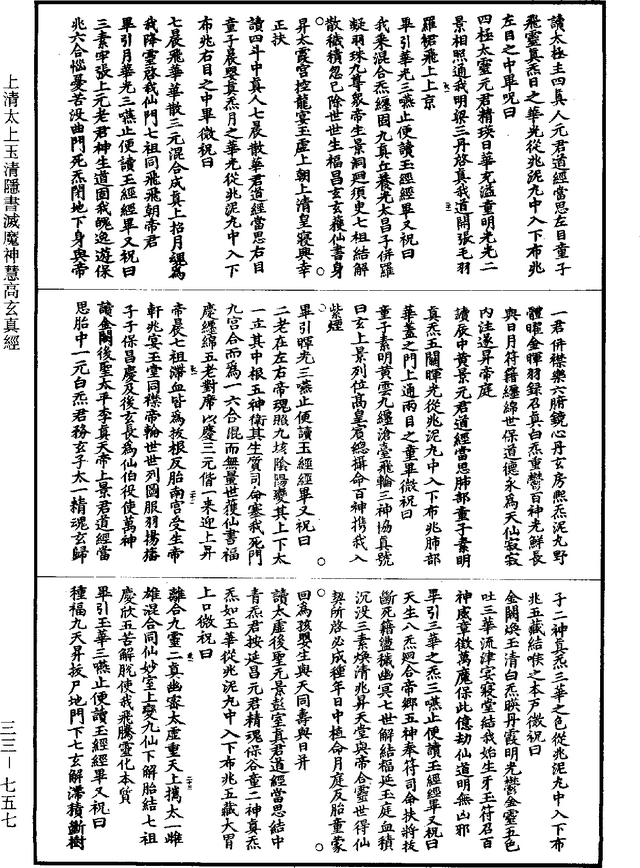 讀太極主四真人元君道經當思左目童子
飛靈真炁日之華光從兆泥九中入下布兆
左目之中畢呪曰
四極太靈元君精瑛日華充溢童明光光二
景相照通我明梁三丹啓真我道開張毛羽
羅裙飛上上京
畢引華光三嚥止便讀玉經經畢又祝曰
我乘混合炁纏固九真立養光太昌子併羅
凝羽珠九尊衆帝生景洞迴須臾七祖結解
散穢積忽已除世世生福昌玄玄獲仙書身
昇太霞宮控龍宴玉虛上朝上清皇寢興幸
正扶
讀四斗中真人七晨散華君道經當思右目
童子晨嬰真炁月之華光從兆泥九中入下
布兆右目之中畢微祝曰
七晨飛華華散三元混合成真上招月魂為
我降靈啓我仙門七祖同飛飛朝帝君
畢引月華光三嚥止便讀玉經經畢又祝曰
三素牢張上元老君神生道固我魄逸遊保
兆六合惱憂苦沒曲門死炁閉地下身與帝
一君併襟樂六腑鏡心丹玄房熙炁泥九野
體曜金暉羽錄召真白炁重鬱百神光鮮長
與日月符籍纏綿世保道德永為天仙寂寂
內注遂昇帝庭
讀辰中黃景元君道經當思肺部童子素明
真炁五關暉光從兆泥九中入下布兆肺部
華蓋之門上通兩目之童畢微祝曰
童子素明黃雲九纏滄臺飛輪三神協真號
曰玄上景列位高皇賓總攝命百神携我入
紫煙
畢引暉光三嚥止便讀玉經經畢又祝曰
二老在左右帝魂照九垓陰陽襲其上下太
一立其中根五神衛其生質司命塞我死門
九宮合而為一六合混而無量世獲仙書福
慶纏綿五老對席以慶三元偕一來迎上昇
帝晨七祖滯血皆為拔根反胎南宮受生帝
軒兆宴玉堂同襟帝輪世世列圖服羽揚旛
子子保昌慶及後玄長為仙伯役使萬神
讀金闕後聖太平李真天帝上景君道經當
思胎中一元白炁君務玄子太一精魂玄歸
子二神真炁三華之色從兆泥九中入下布
兆五藏結喉之本戶微祝曰
金闕煥玉清白炁映丹霞明光鬱金靈五色
吐三華流津宴寢堂結我始生牙玉符召百
神威章徵萬魔保此億劫仙道明無凶邪
畢引三華之炁三嚥止便讀玉經經畢又祝曰
天生八炁迴合帝鄉五神奉符司命扶將技
斷死籍盪穢幽冥七世解結福延玉庭血積
沉沒三素煥清兆昇天堂與帝合靈世得仙
契所啓必成種年日中植命月庭反胎童蒙
回為孩嬰生與天同壽與日并
讀太虛後聖元景彭室真君道經當思結中
青炁君按延昌元君精魂保谷童二神真炁
炁如玉華從兆泥九中入下布兆五藏大胃
上口微祝曰
離合九靈二真幽密太虛重天上攜太一雌
雄混合同仙妙室上變九仙下解胎結七祖
慶欣五苦解脫使我飛騰靈化本質
畢引玉華三嚥止便讀玉經經畢又祝曰
種福九天昇拔尸地門下七玄解滯積斷樹
上清太上玉清隱書滅魔神慧高玄真經
三三－七五七